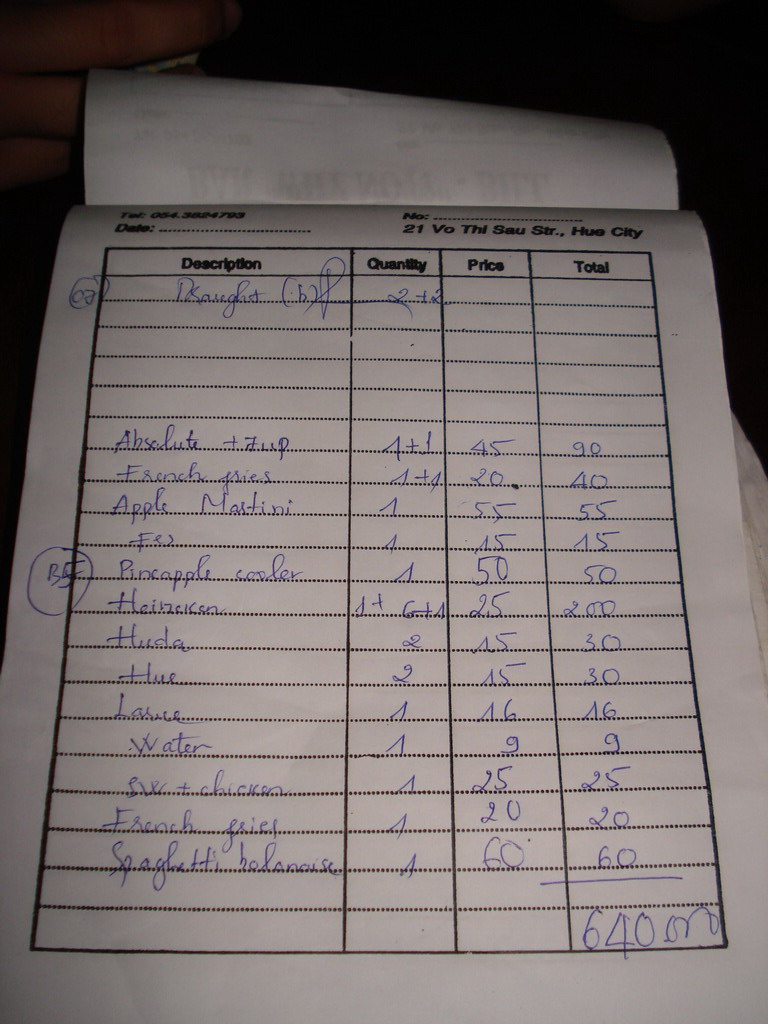 Tel: 054.3824793 No: ....................
Date: .................... 21 Vo Thi Sau Str., Hue City
Description Quantity Price Total
Draught (b) 2+2
Absolute + 7up 1+1 45 90
French fries 1+1 20 40
Apple Martini 1 55 55
1 15 15
B5 Pineapple cooler 1 50 50
Heineken 1+ 6+1 25 200
Huda 2 15 30
Hue 2 15 30
Larue 1 16 16
Water 1 9 9
sw + chicken 1 25 25
French fries 1 20 20
Spaghetti bolanoise 1 60 60
640000